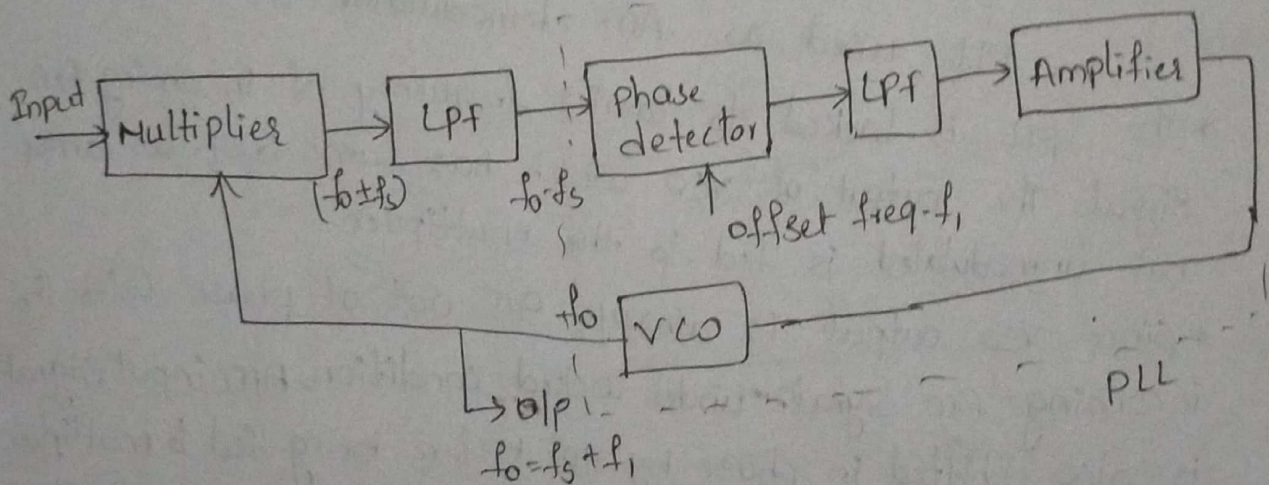 Input
Multiplier
LPf
phase
detector
LPf
Amplifier
(fo±fs)
fo-fs
offset freq-f1
fo
VCO
PLL
O/p
fo=fs+f1